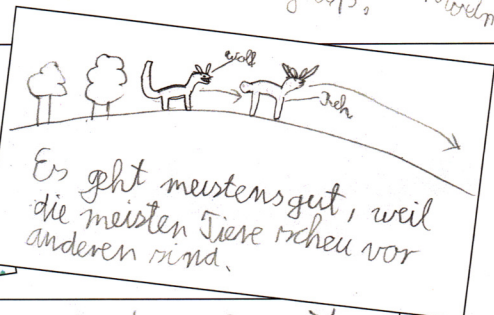 wolf
Reh
Es geht meistens gut, weil
die meisten Tiere scheu vor
anderen sind.